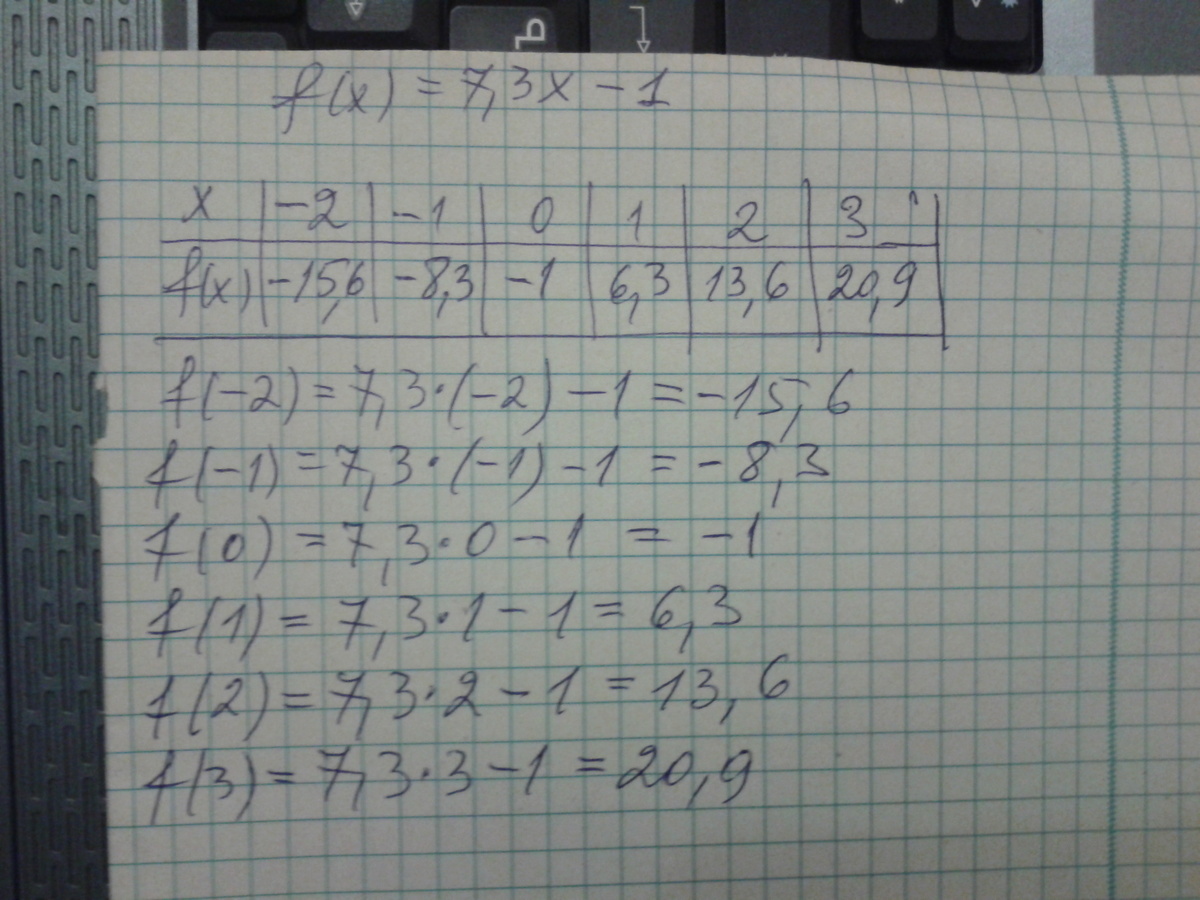 Ъ
f(x) = 7,3x - 1
x | -2 | -1 | 0 | 1 | 2 | 3
f(x) | -15,6 | -8,3 | -1 | 6,3 | 13,6 | 20,9
f(-2) = 7,3·(-2) - 1 = -15,6
f(-1) = 7,3·(-1) - 1 = -8,3
f(0) = 7,3·0 - 1 = -1
f(1) = 7,3·1 - 1 = 6,3
f(2) = 7,3·2 - 1 = 13,6
f(3) = 7,3·3 - 1 = 20,9